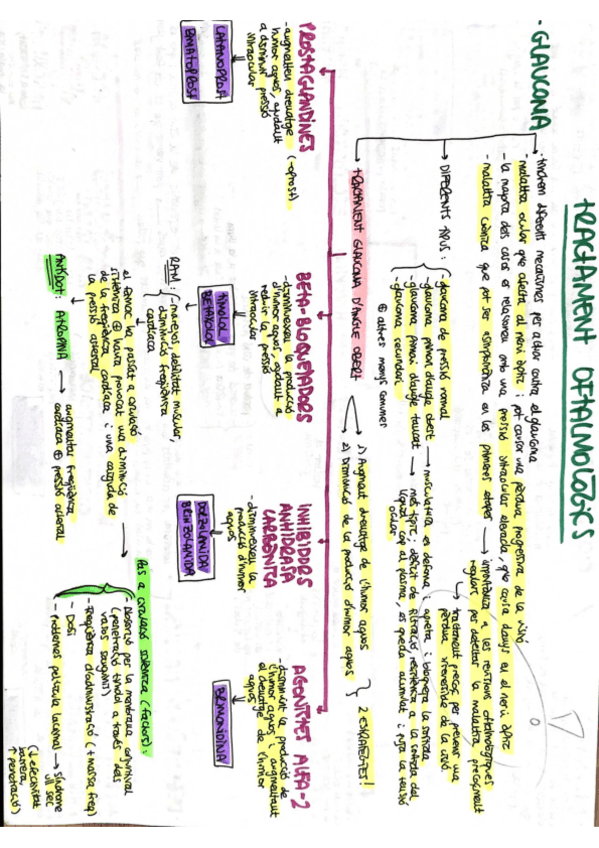 TRACTAMENT OFTALMOLÒGICS
- GLAUCOMA
- tindrem diferents mecanismes per actuar contra el glaucoma
- malaltia ocular que afecta al nervi òptic i pot causar una pèrdua progressiva de la visió
- la majoria dels casos es relaciona amb una pressió intraocular elevada, que causa danys en el nervi òptic
- malaltia crònica que pot ser asimptomàtica en les primeres etapes → importància a les revisions oftalmològiques
regulars per detectar la malaltia precoçment
→ tractament precoç per prevenir una
pèrdua irreversible de la visió.
→ DIFERENTS TIPUS:
- glaucoma de pressió normal
- glaucoma primari d'angle obert → musculatura es deforma i apreta i bloqueja la sortida
- glaucoma primari d'angle tancat → més típic, dèficit de filtració, resistència a la sortida del
líquid cap al plasma, es queda acumulat i puja la tensió
ocular
- glaucoma secundari
⊕ altres menys comunes
→ TRACTAMENT GLAUCOMA D'ANGLE OBERT
1) Augment drenatge de l'humor aquos
2) Disminució de la producció d'humor aquos
2 ESTRATÈGIES!
PROSTAGLANDINES (-oprost)
- augmenten drenatge
humor aquos, ajudant
a disminuir pressió
intraocular
LATANOPROST
BIMATOPROST
BETA-BLOQUEJADORS
- disminueixen la producció
d'humor aquos, ajudant a
reduir la pressió
intraocular
TIMOLOL
BETAXOLOL
RAM: marejos, debilitat muscular,
disminució freqüència
cardíaca
el fàrmac ha passat a circulació
sistèmica ⊕ haurà provocat una disminució
de la freqüència cardíaca i una caiguda de
la pressió arterial
ANTÍDOT: ATROPINA → augmentar freqüència
cardíaca ⊕ pressió arterial
INHIBIDORS
ANHIDRASA
CARBÒNICA
- disminueixen la
producció d'humor
aquos
DORZOLAMIDA
BRINZOLAMIDA
Pas a circulació sistèmica (factors):
- Absorció per la membrana conjuntival
(penetració tindrà a través dels
vasos sanguinis)
- Freqüència d'administració (+ massa freq)
- Dosi
- Problemes pel·lícula lacrimal → síndrome
ull sec
(↓ efectivitat
barrera,
↑ penetració)
AGONISTES ALFA-2
- disminuint la producció de
l'humor aquos i augmentant
el drenatge de l'humor
aquos
BRIMONIDINA